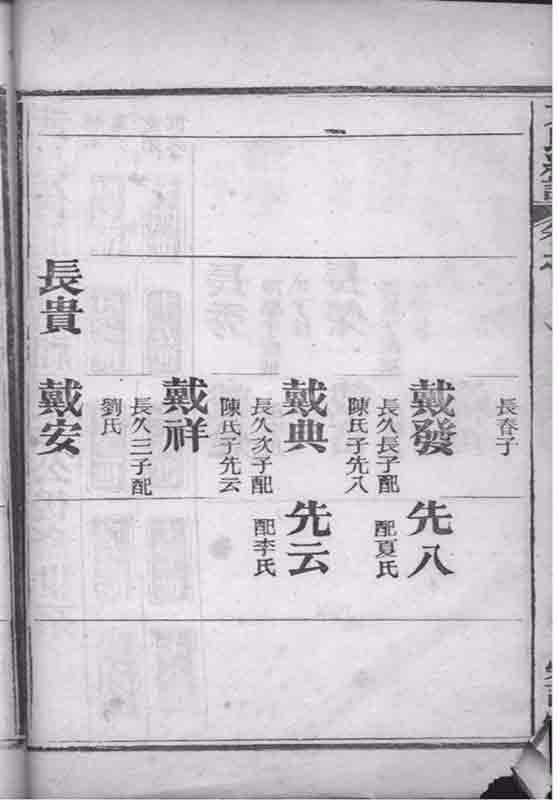 長春子
戴發
長久長子配
陳氏子先八
先八
配夏氏
戴典
長久次子配
陳氏子先云
先云
配李氏
戴祥
長久三子配
劉氏
長貴
戴安